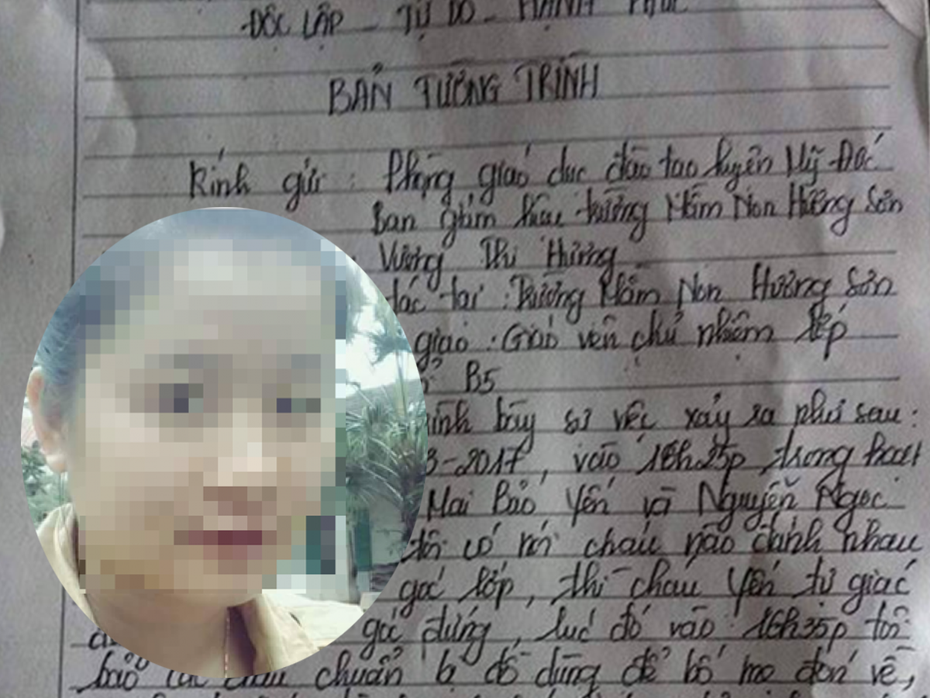 ĐỘC LẬP - TỰ DO - HẠNH PHÚC
BẢN TƯỜNG TRÌNH
Kính gửi : Phòng giáo dục đào tạo huyện Mỹ Đức
Ban giám hiệu trường Mầm Non Hương Sơn
Vương Thị Hương
tác tại : Trường Mầm Non Hương Sơn
giao : Giáo viên chủ nhiệm lớp
B5
trình bày sự việc xảy ra như sau :
3-2017, vào 16h25p trong hoạt
Mai Bảo Yến và Nguyễn Ngọc
tôi có nói cháu nào đánh nhau
góc lớp, thì cháu Yến tự giác
góc đứng, lúc đó vào 16h35p tôi
bảo các cháu chuẩn bị đồ dùng để bố mẹ đón về,